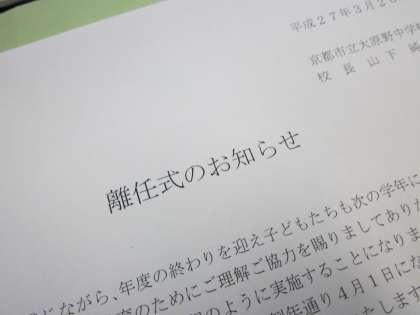 平成27年3月2
京都市立大原野中学
校長 山下
離任式のお知らせ
ながら、年度の終わりを迎え子どもたちも次の学年に
のためにご理解ご協力を賜りましてありが
のように実施することになりま
例年通り4月1日にな